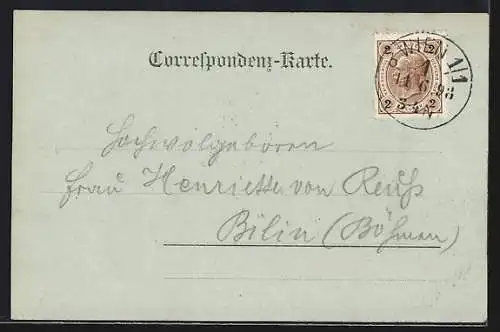 Correspondenz-Karte.
2 2
2 2
WIEN 1/1
11 6 98
3
Hochwolgeboren
Frau Henriette von Reuß
Bilin (Böhmen)